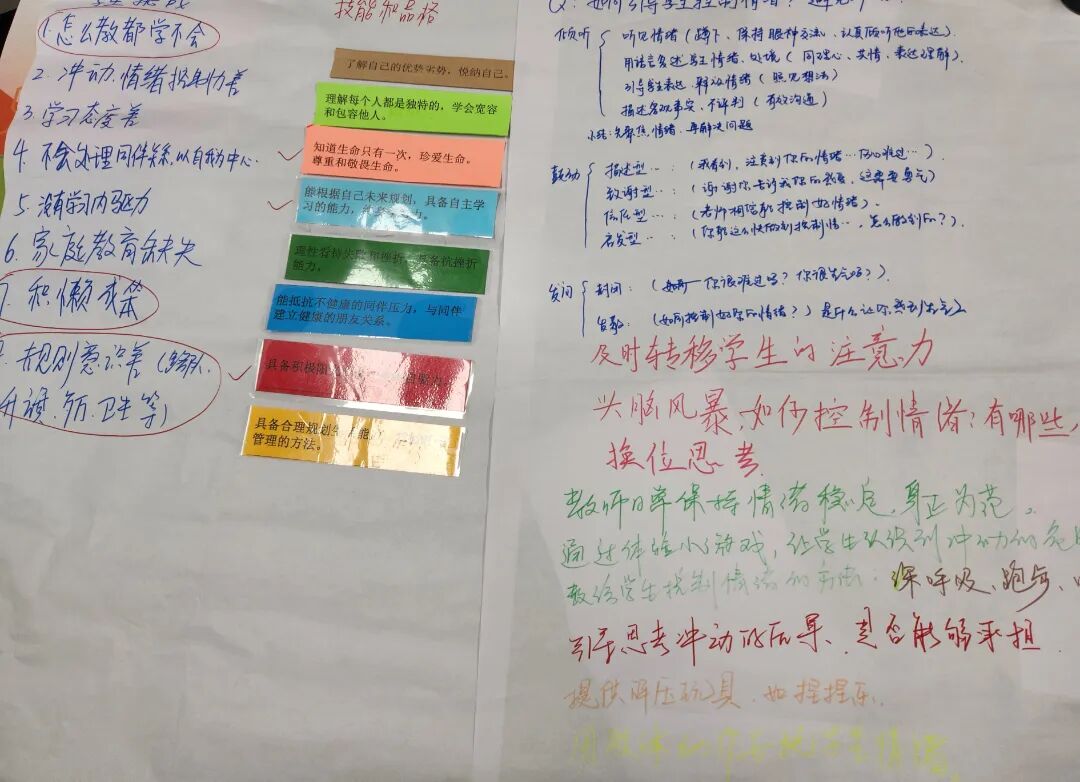 1.怎么教都学不会
2. 冲动.情绪控制力差
3.学习态度差
4. 不会处理同伴关系,以自我中心.
5.没有学习内驱力
6.家庭教育缺失
7.积懒或笨
规则意识差
卫生等)
技能和品格
了解自己的优势劣势,悦纳自己。
理解每个人都是独特的,学会宽容
和包容他人。
知道生命只有一次,珍爱生命。
尊重和敬畏生命。
能根据自己未来规划,具备自主学
习的能力,
理性看待失败和挫折,具备抗挫折
能力。
能抵抗不健康的同伴压力,与同伴
建立健康的朋友关系。
具备积极
具备合理规划
管理的方法。
Q:如何引导学生控制情绪?
倾听
听见情绪(蹲下、保持眼神交流、认真倾听他的表达)
用语言表述学生情绪、处境(同理心、共情、表达理解).
引导学生表达、释放情绪(
描述客观事实、不评判(有效沟通)
小结:先聚焦情绪,再解决问题
鼓励
描述型…:(我看到,注意到你的情绪…
致谢型…:(谢谢你告诉我你的
信任型…:(老师相信你控制好情绪).
启发型…:(你能这么快的控制情…,怎么做到的?).
发问
封闭:(如——你很难过吗?你很生气吗?).
(如何控制好你的情绪?)是什么让你感到生气
及时转移学生的注意力
头脑风暴,如何控制情绪;有哪些,
换位思考
教师日常保持情绪稳定,身正为范。
通过体验小游戏,让学生认识到冲动的危
教给学生控制情绪的方法:深呼吸、跑步、
引导思考冲动的后果、是否能够承担
提供解压玩具,如捏捏乐.